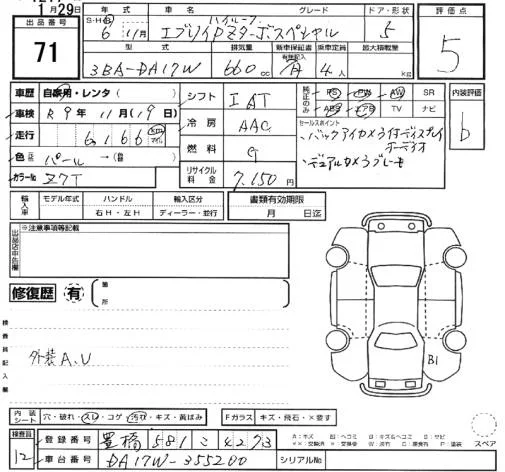 1月29日
出品番号
71
年式 車名 グレード ドア・形状
S・H・R 6年11月 ハイルーフ エブリイPZターボスペシャル 5
型式 排気量 新車保証書 有無記入 乗車定員 最大積載量
3BA-DA17W 660cc 有 4人 kg
評価点
5
車歴 自家用・レンタ( )
車検 R9年11月(19日)
走行 6166
色 パール→( )
カラーNo. Z7T
シフト IAT
冷房 AAC
燃料 G
リサイクル料金 7.150円
純正のみ PS PW AW SR
ABS エアB TV ナビ
セールスポイント
バックアイカメラ付ディスプレイ
オーディオ
デュアルカメラブレーキ
内装評価
b
輸入車 モデル年式 ハンドル 輸入区分 書類有効期限
右H・左H ディーラー・並行 月 日迄
出品店申告欄
※注意事項等記載
修復歴 有 箇所
検査員記入欄
外装A.U
B1
内装シート 穴・破れ・スレ・コゲ・汚れ・キズ・黄ばみ Fガラス キズ・飛石・×要す
検査員
12
登録番号 豊橋 581 こ 4273
車台番号 DA17W-355200 シリアルNo.
A:キズ B:ヘコミ
スペア